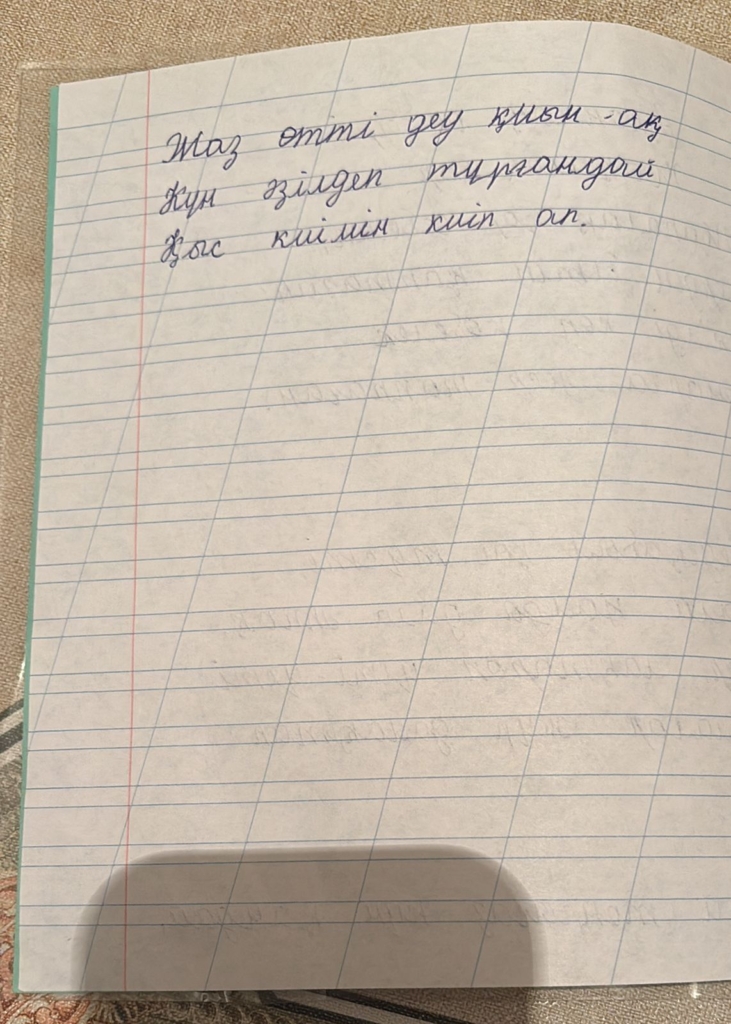 Жаз өтті деу қиын-ақ
Күн әзілдеп тұрғандай
Қыс киімін киіп ап.